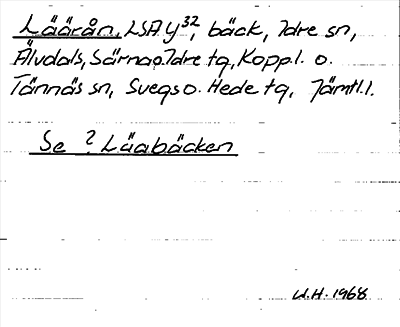 Läärån, LSA Y³², bäck, Idre sn,
Älvdals, Särna o. Idre tg, Kopp.l. o.
Tännäs sn, Svegs o. Hede tg, Jämtl.l.
Se ? Lääbäcken
W.H. 1968